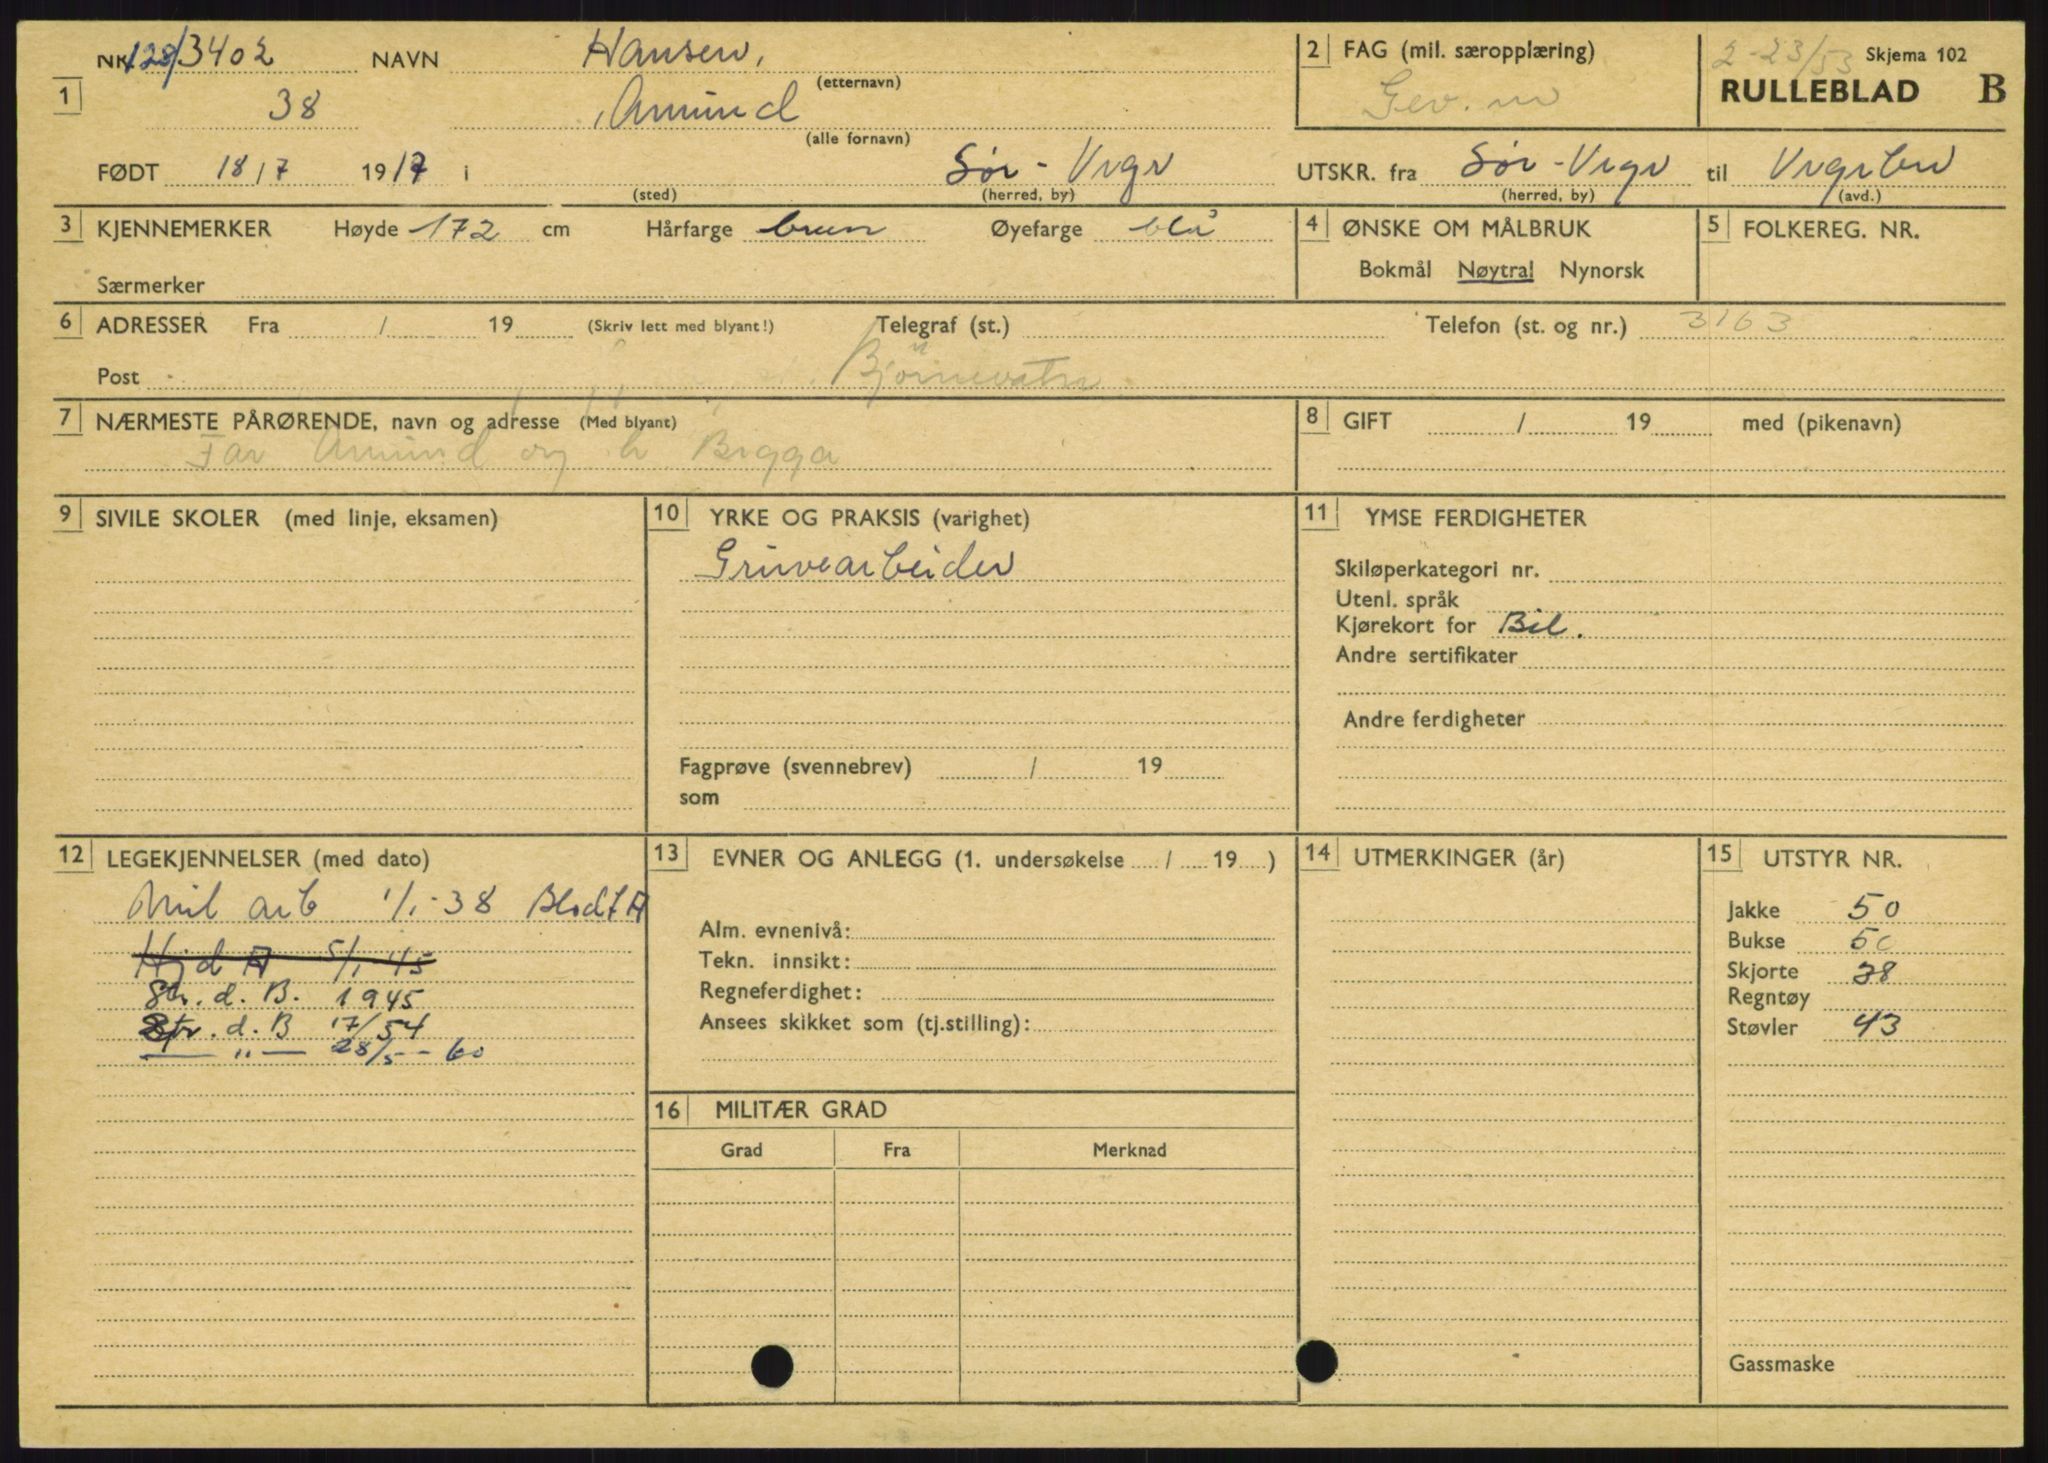 1 NR. 128/3402 NAVN Hansen, (etternavn)
38 Amund (alle fornavn)
FØDT 18/7 1917 i (sted) Sør-Vrgr (herred, by)
2 FAG (mil. særopplæring)
Gev. m
2-23/53 Skjema 102
RULLEBLAD B
UTSKR. fra Sør-Vrgr (herred, by) til Vrgrbn (avd.)
3 KJENNEMERKER Høyde 172 cm Hårfarge brun Øyefarge blå
Særmerker
4 ØNSKE OM MÅLBRUK
Bokmål Nøytral Nynorsk
5 FOLKEREG. NR.
6 ADRESSER Fra / 19 (Skriv lett med blyant!) Telegraf (st.) Telefon (st. og nr.) 3163
Post Bjørnevatn
7 NÆRMESTE PÅRØRENDE, navn og adresse (Med blyant)
Far Amund og h Brgga
8 GIFT / 19 med (pikenavn)
9 SIVILE SKOLER (med linje, eksamen)
10 YRKE OG PRAKSIS (varighet)
Gruvearbeider
Fagprøve (svennebrev) / 19
som
11 YMSE FERDIGHETER
Skiløperkategori nr.
Utenl. språk
Kjørekort for Bil.
Andre sertifikater
Andre ferdigheter
12 LEGEKJENNELSER (med dato)
Mil arb 1/1-38 Blodt A
Hjd A 5/1 45
Str. d. B. 1945
Str. d. B 17/54
— " — 28/5-60
13 EVNER OG ANLEGG (1. undersøkelse / 19 )
Alm. evnenivå:
Tekn. innsikt:
Regneferdighet:
Ansees skikket som (tj.stilling):
14 UTMERKINGER (år)
15 UTSTYR NR.
Jakke 50
Bukse 50
Skjorte 38
Regntøy
Støvler 43
Gassmaske
16 MILITÆR GRAD
Grad Fra Merknad